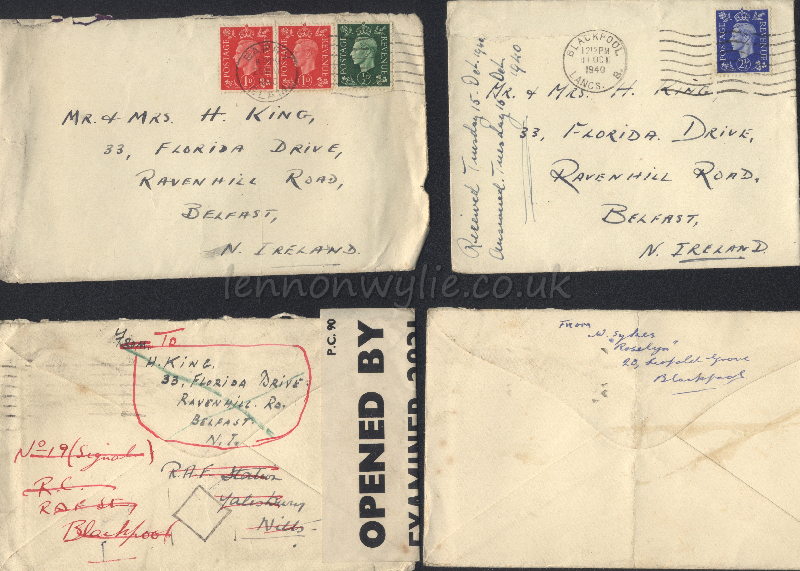 POSTAGE REVENUE
1D
POSTAGE REVENUE
1D
POSTAGE REVENUE
MR. & MRS. H. KING,
33, FLORIDA DRIVE,
RAVENHILL ROAD,
BELFAST,
N. IRELAND.
BLACKPOOL
12 15 PM
OCT
1940
LANCS. B.
POSTAGE REVENUE
Received Tuesday 15. Oct. 1940
Answered. Tuesday 15 Oct. 1940
MR. & MRS. H. KING,
33, FLORIDA DRIVE,
RAVENHILL ROAD.
BELFAST,
N. IRELAND.
lennonwylie.co.uk
From To
H. KING.
33, FLORIDA DRIVE.
RAVENHILL. RD.
BELFAST.
N. I.
No 19 (Signal)
R.C.
RAF St
Blackpool
R.A.F. Station
Yatesbury
Wilts
P.C. 90
OPENED BY
EXAMINER
From
W. Sykes
"Roselyn"
20, Leopold Grove
Blackpool